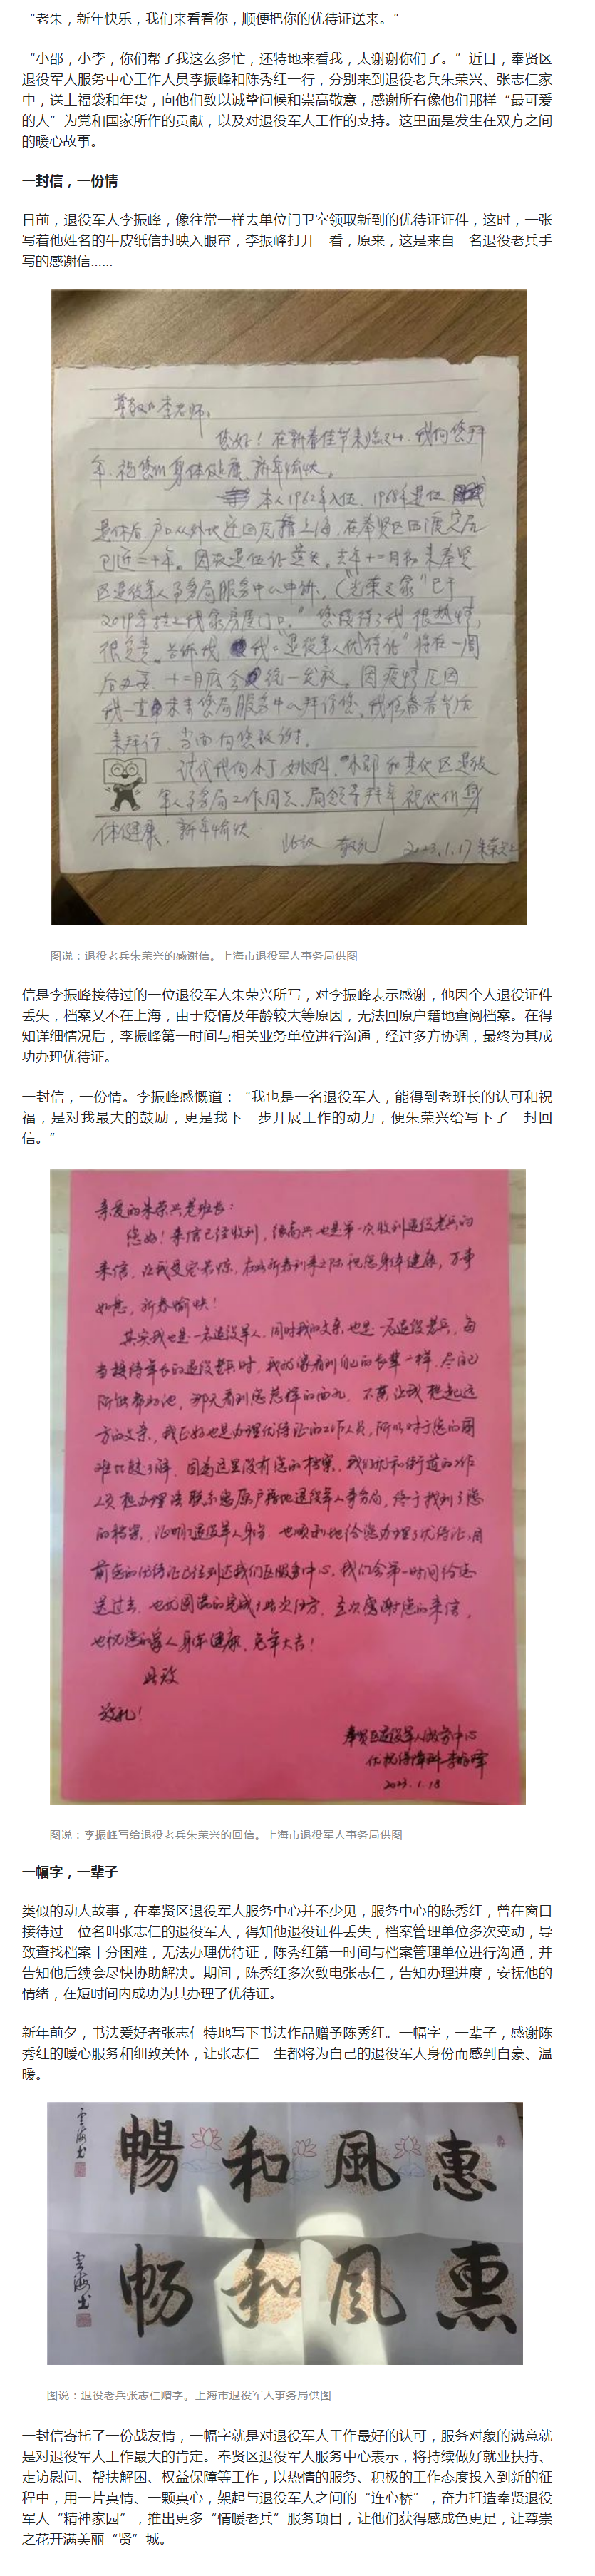 “老朱，新年快乐，我们来看看你，顺便把你的优待证送来。”
“小邵，小李，你们帮了我这么多忙，还特地来看我，太谢谢你们了。”近日，奉贤区
退役军人服务中心工作人员李振峰和陈秀红一行，分别来到退役老兵朱荣兴、张志仁家
中，送上福袋和年货，向他们致以诚挚问候和崇高敬意，感谢所有像他们那样“最可爱
的人”为党和国家所作的贡献，以及对退役军人工作的支持。这里面是发生在双方之间
的暖心故事。
一封信，一份情
日前，退役军人李振峰，像往常一样去单位门卫室领取新到的优待证证件，这时，一张
写着他姓名的牛皮纸信封映入眼帘，李振峰打开一看，原来，这是来自一名退役老兵手
写的感谢信......
尊敬的李老师：
您好！在新春佳节来临之际，我向您拜
年，祝您们身体健康、新年愉快。
本人1962年入伍，1968年退伍，
退休后，户口从外地迁回原籍上海，在奉贤区西渡定居
已近二十年。因故退伍证遗失。去年十一月初来奉贤
区退役军人事务局服务中心申请，（“光荣之家”已于
2019年挂上我家房屋门口。”您接待了我很热情，
很负责。告诉我，我“退役军人优待证”将在一周
后办妥，十二月底会统一发放。因疫情原因
我一直未去您局服务中心拜访您，我准备春节后
来拜访，当面向您致谢。
请代我向小丁、姚科、小邵和其他区退役
军人事务局工作同志、局领导拜年祝他们身
体健康，新年愉快
此致 敬礼 2023.1.17 朱荣兴上
图说：退役老兵朱荣兴的感谢信。上海市退役军人事务局供图
信是李振峰接待过的一位退役军人朱荣兴所写，对李振峰表示感谢，他因个人退役证件
丢失，档案又不在上海，由于疫情及年龄较大等原因，无法回原户籍地查阅档案。在得
知详细情况后，李振峰第一时间与相关业务单位进行沟通，经过多方协调，最终为其成
功办理优待证。
一封信，一份情。李振峰感慨道：“我也是一名退役军人，能得到老班长的认可和祝
福，是对我最大的鼓励，更是我下一步开展工作的动力，便朱荣兴给写下了一封回
信。”
亲爱的朱荣兴老班长：
您好！来信已经收到，很高兴也是第一次收到退役老兵的
来信，让我受宠若惊，在此新春到来之际祝您身体健康，万事
如意，新春愉快！
其实我也是一名退役军人，同时我的父亲也是一名退役老兵，每
当接待年长的退役老兵时，我就像看到自己的长辈一样，尽自己
所能帮助他，那天看到您慈祥的面孔，不禁让我想起远
方的父亲，我正好也是办理优待证的工作人员，所以对于您的困
难比较了解，因为这里没有您的档案，我们就和街道的工作
人员想办理法联系您原户籍地退役军人事务局，终于找到了您
的档案，证明了退役军人身份，也顺利地给您办理了优待证，目
前您的优待证已经到达我们区服务中心，我们会第一时间给您
送过去，也就圆满的完成了此次任务，再次感谢您的来信，
也祝您的家人身体健康，兔年大吉！
此致
敬礼！
奉贤区退役军人服务中心
优抚待遇科 李振峰
2023.1.18
图说：李振峰写给退役老兵朱荣兴的回信。上海市退役军人事务局供图
一幅字，一辈子
类似的动人故事，在奉贤区退役军人服务中心并不少见，服务中心的陈秀红，曾在窗口
接待过一位名叫张志仁的退役军人，得知他退役证件丢失，档案管理单位多次变动，导
致查找档案十分困难，无法办理优待证，陈秀红第一时间与档案管理单位进行沟通，并
告知他后续会尽快协助解决。期间，陈秀红多次致电张志仁，告知办理进度，安抚他的
情绪，在短时间内成功为其办理了优待证。
新年前夕，书法爱好者张志仁特地写下书法作品赠予陈秀红。一幅字，一辈子，感谢陈
秀红的暖心服务和细致关怀，让张志仁一生都将为自己的退役军人身份而感到自豪、温
暖。
惠風和暢
雲海书
惠风和畅
雲海书
图说：退役老兵张志仁赠字。上海市退役军人事务局供图
一封信寄托了一份战友情，一幅字就是对退役军人工作最好的认可，服务对象的满意就
是对退役军人工作最大的肯定。奉贤区退役军人服务中心表示，将持续做好就业扶持、
走访慰问、帮扶解困、权益保障等工作，以热情的服务、积极的工作态度投入到新的征
程中，用一片真情、一颗真心，架起与退役军人之间的“连心桥”，奋力打造奉贤退役
军人“精神家园”，推出更多“情暖老兵”服务项目，让他们获得感成色更足，让尊崇
之花开满美丽“贤”城。